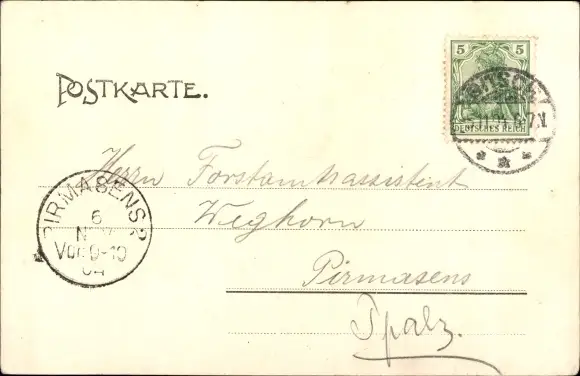 5 5
DEUTSCHES REICH
BITSCH
11.04. 6-7.N
POSTKARTE.
Herrn Forstamtsassistent
Weghorn
Pirmasens
Pfalz.
PIRMASENS 2
6
Vor. 9-10
04